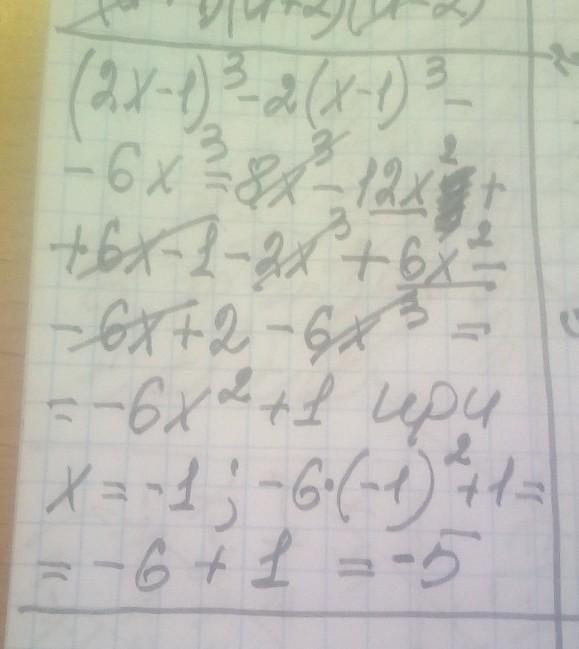 (2x-1)³-2(x-1)³-
-6x³=8x³-12x²+
+6x-1-2x³+6x²-
-6x+2-6x³=
=-6x²+1 при
x=-1; -6·(-1)²+1=
=-6+1=-5